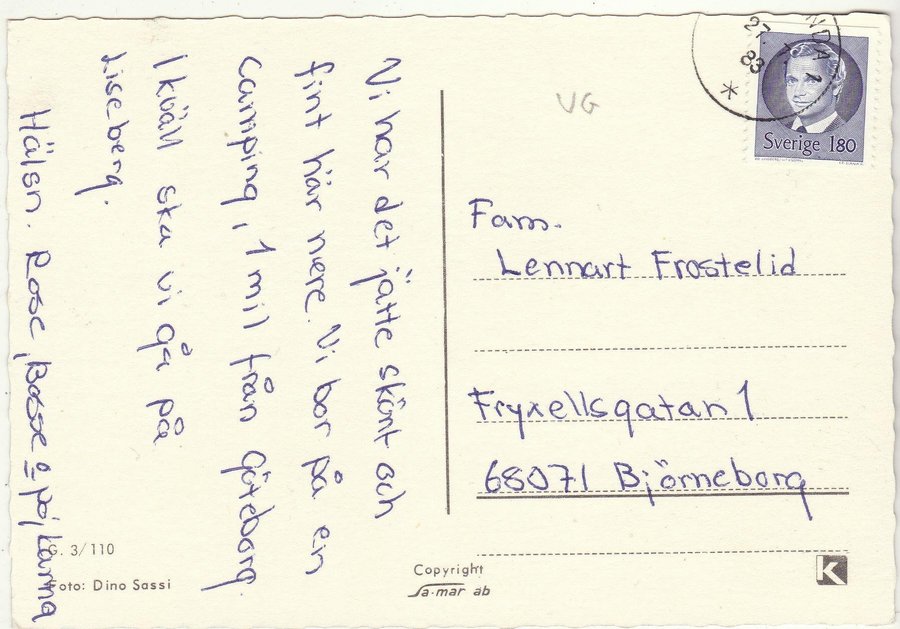 Vi har det jätte skönt och
fint här nere. Vi bor på en
camping, 1 mil från Göteborg.
Ikväll ska vi gå på
Liseberg.
Hälsn. Rose, Basse o pojkarna
G. 3/110
Foto: Dino Sassi
Copyright
Sa-mar ab
VG
27.
83
Sverige 180
Fam.
Lennart Frostelid
Fryxellsgatan 1
68071 Björneborg
K